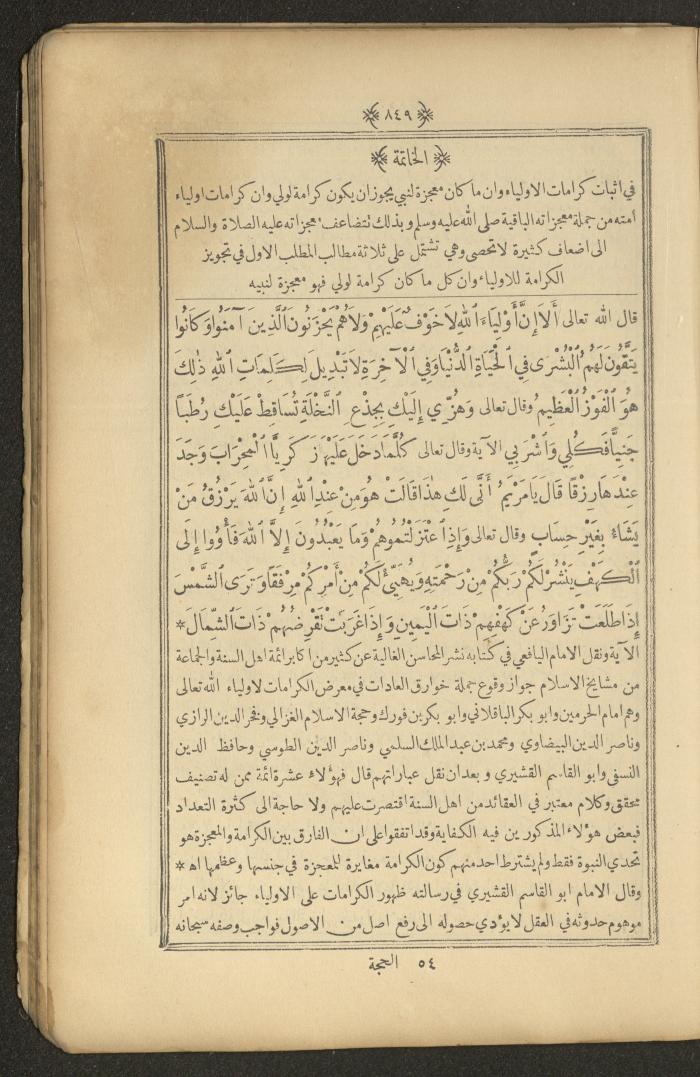 ﴿ ٨٤٩ ﴾
﴿ الخاتمة ﴾
في اثبات كرامات الاولياء وان ما كان معجزة لنبي يجوز ان يكون كرامة لولي وان كرامات اولياء
امته من جملة معجزاته الباقية صلى الله عليه وسلم وبذلك تتضاعف معجزاته عليه الصلاة والسلام
الى اضعاف كثيرة لا تحصى وهي تشتمل على ثلاثة مطالب المطلب الاول في تجويز
الكرامة للاولياء وان كل ما كان كرامة لولي فهو معجزة لنبيه
قال الله تعالى أَلاَ إِنَّ أَوْلِيَاءَ ٱللهِ لاَ خَوْفٌ عَلَيْهِمْ وَلاَ هُمْ يَحْزَنُونَ ٱلَّذِينَ آمَنُوا وَكَانُوا
يَتَّقُونَ لَهُمُ ٱلْبُشْرَى فِي ٱلْحَيَاةِ ٱلدُّنْيَا وَفِي ٱلْآخِرَةِ لاَ تَبْدِيلَ لِكَلِمَاتِ ٱللهِ ذٰلِكَ
هُوَ ٱلْفَوْزُ ٱلْعَظِيمُ وقال تعالى وَهُزِّي إِلَيْكِ بِجِذْعِ ٱلنَّخْلَةِ تُسَاقِطْ عَلَيْكِ رُطَبًا
جَنِيًّا فَكُلِي وَٱشْرَبِي الآية وقال تعالى كُلَّمَا دَخَلَ عَلَيْهَا زَكَرِيَّا ٱلْمِحْرَابَ وَجَدَ
عِنْدَهَا رِزْقًا قَالَ يَا مَرْيَمُ أَنَّى لَكِ هٰذَا قَالَتْ هُوَ مِنْ عِنْدِ ٱللهِ إِنَّ ٱللهَ يَرْزُقُ مَنْ
يَشَاءُ بِغَيْرِ حِسَابٍ وقال تعالى وَإِذِ ٱعْتَزَلْتُمُوهُمْ وَمَا يَعْبُدُونَ إِلاَّ ٱللهَ فَأْوُوا إِلَى
ٱلْكَهْفِ يَنْشُرْ لَكُمْ رَبُّكُمْ مِنْ رَحْمَتِهِ وَيُهَيِّئْ لَكُمْ مِنْ أَمْرِكُمْ مِرْفَقًا وَتَرَى ٱلشَّمْسَ
إِذَا طَلَعَتْ تَزَاوَرُ عَنْ كَهْفِهِمْ ذَاتَ ٱلْيَمِينِ وَإِذَا غَرَبَتْ تَقْرِضُهُمْ ذَاتَ ٱلشِّمَالَ *
الآية ونقل الامام اليافعي في كتابه نشر المحاسن الغالية عن كثير من اكابر ائمة اهل السنة والجماعة
من مشايخ الاسلام جواز وقوع جملة خوارق العادات في معرض الكرامات لاولياء الله تعالى
وهم امام الحرمين وابو بكر الباقلاني وابو بكر بن فورك وحجة الاسلام الغزالي وفخر الدين الرازي
وناصر الدين البيضاوي ومحمد بن عبد الملك السلمي وناصر الدين الطوسي وحافظ الدين
النسفي وابو القاسم القشيري وبعد ان نقل عباراتهم قال فهؤلاء عشرة ائمة ممن له تصنيف
محقق وكلام معتبر في العقائد من اهل السنة اقتصرت عليهم ولا حاجة الى كثرة التعداد
فبعض هؤلاء المذكورين فيه الكفاية وقد اتفقوا على ان الفارق بين الكرامة والمعجزة هو
تحدي النبوة فقط ولم يشترط احد منهم كون الكرامة مغايرة للمعجزة في جنسها وعظمها اه *
وقال الامام ابو القاسم القشيري في رسالته ظهور الكرامات على الاولياء جائز لانه امر
موهوم حدوثه في العقل لا يؤدي حصوله الى رفع اصل من الاصول فواجب وصفه سبحانه
٥٤ الحجة